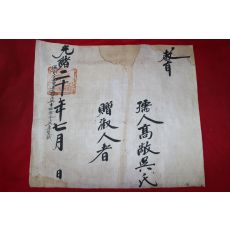 敎旨
孺人高敞吳氏
贈淑人者
光緖二十年七月 日